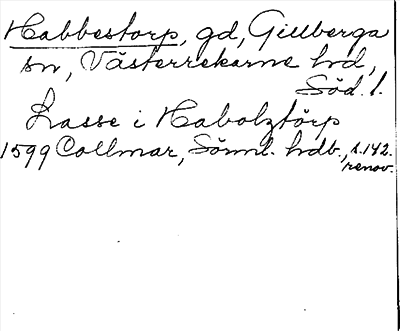 Habbestorp, gd, Gillberga
sn, Västerrekarne hrd,
Söd. l.
Lasse i Habolztörp
1599 Collmar, Sörml. hdb., s. 142.
renov.